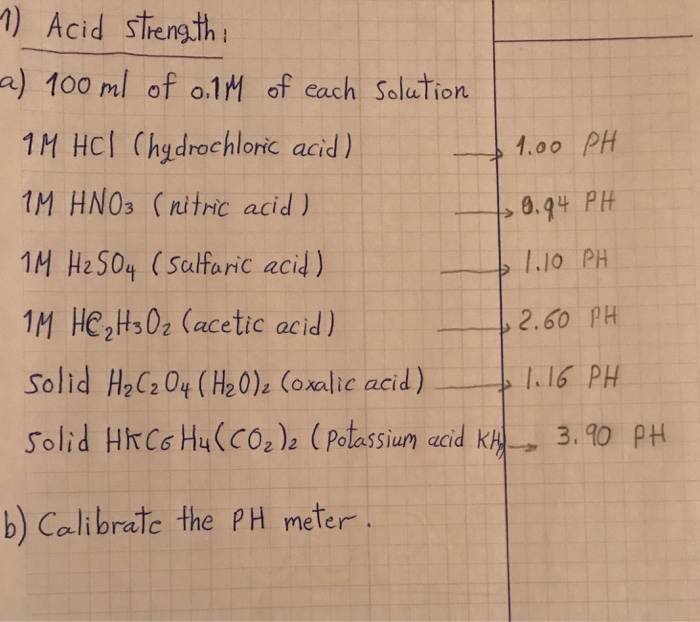 1) Acid strength:
a) 100 ml of 0.1M of each Solution
1M HCl (hydrochloric acid) → 1.00 PH
1M HNO3 (nitric acid) → 0.94 PH
1M H2SO4 (Sulfuric acid) → 1.10 PH
1M HC2H3O2 (acetic acid) → 2.60 PH
Solid H2C2O4(H2O)2 (oxalic acid) → 1.16 PH
Solid HKC6H4(CO2)2 (Potassium acid → 3.90 PH
b) Calibrate the PH meter.